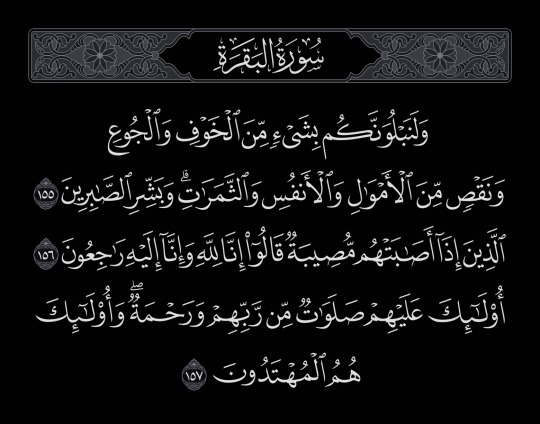 سُورَةُ البَقَرَةِ
وَلَنَبْلُوَنَّكُم بِشَىْءٍ مِّنَ ٱلْخَوْفِ وَٱلْجُوعِ
وَنَقْصٍ مِّنَ ٱلْأَمْوَٰلِ وَٱلْأَنفُسِ وَٱلثَّمَرَٰتِ ۗ وَبَشِّرِ ٱلصَّٰبِرِينَ ١٥٥
ٱلَّذِينَ إِذَآ أَصَٰبَتْهُم مُّصِيبَةٌ قَالُوٓا۟ إِنَّا لِلَّهِ وَإِنَّآ إِلَيْهِ رَٰجِعُونَ ١٥٦
أُو۟لَٰٓئِكَ عَلَيْهِمْ صَلَوَٰتٌ مِّن رَّبِّهِمْ وَرَحْمَةٌ ۖ وَأُو۟لَٰٓئِكَ
هُمُ ٱلْمُهْتَدُونَ ١٥٧